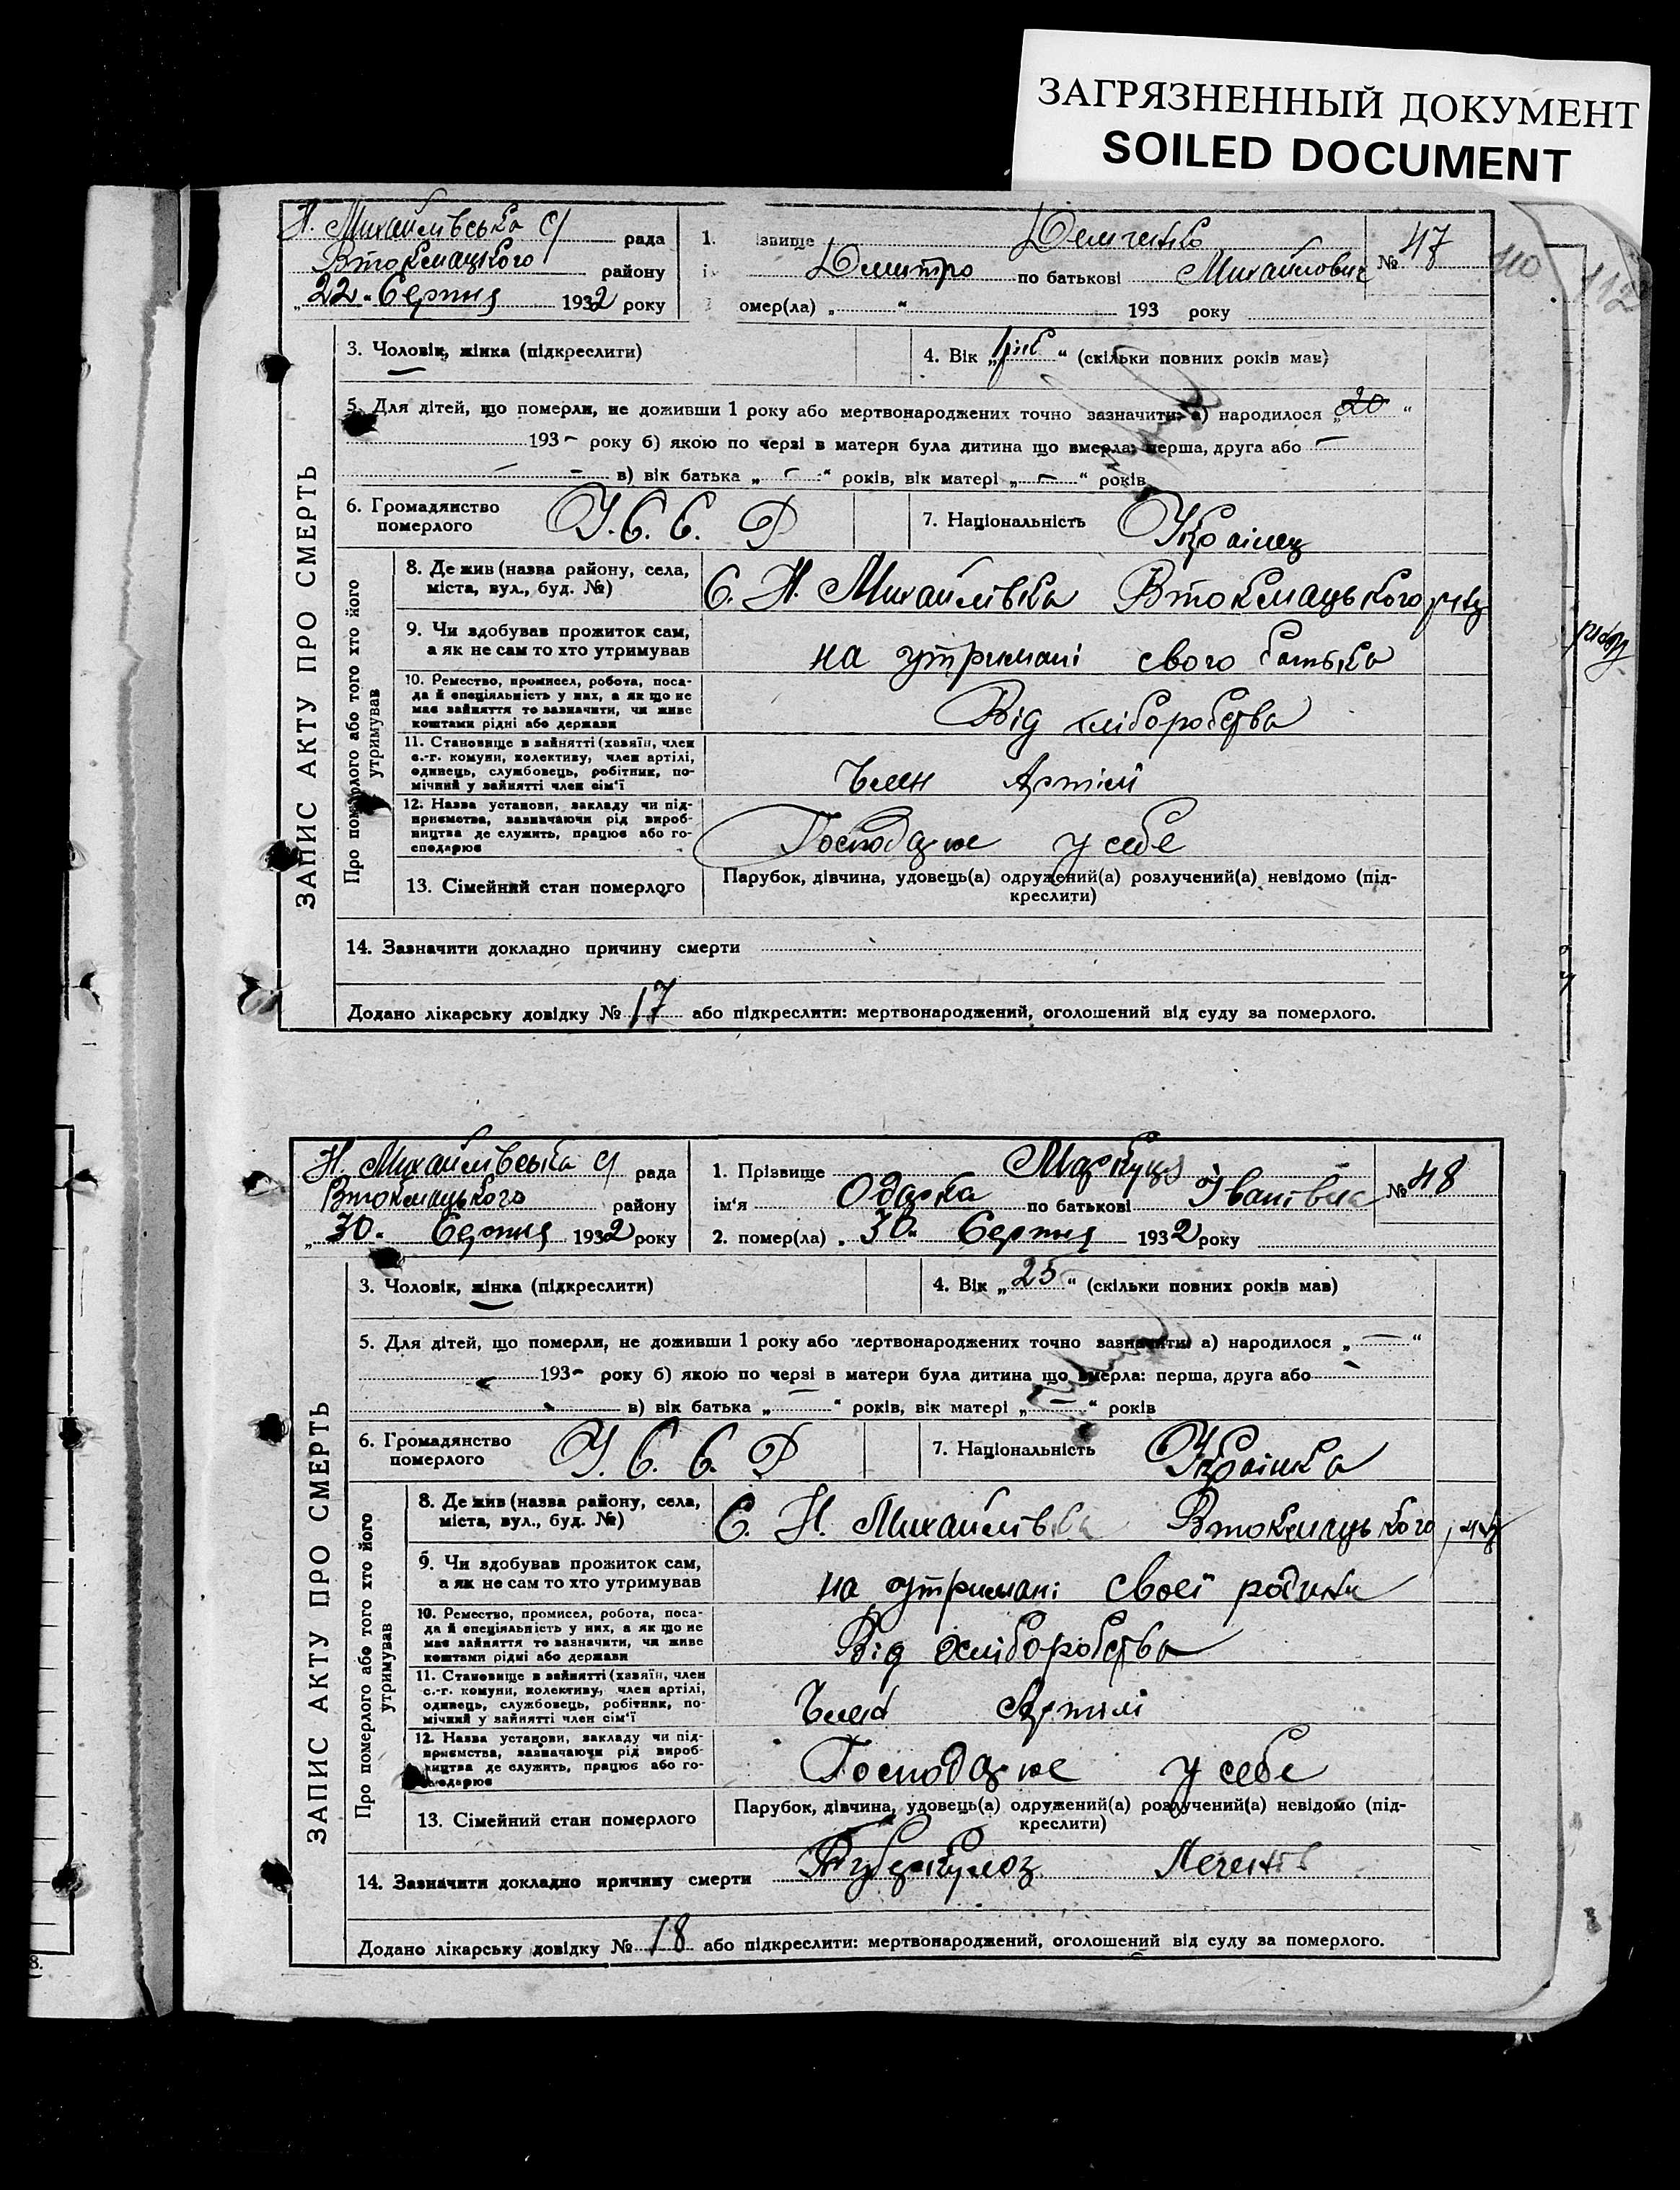 ЗАГРЯЗНЕННЫЙ ДОКУМЕНТ
SOILED DOCUMENT
Н. Михайлівська с/ рада
Втокмацького району
„22“ Серпня 1932 року
1. ізвище Демченко
Дмитро по батькові Михайлович
№ 47
омер(ла) „ “ 193 року
110
112
3. Чоловік, жінка (підкреслити)
4. Вік „1 рік“ (скільки повних років мав)
5. Для дітей, що померли, не доживши 1 року або мертвонароджених точно зазначити: а) народилося „20“
193– року б) якою по черзі в матери була дитина що вмерла: перша, друга або –
– – в) вік батька „–“ років, вік матері „–“ років
6. Громадянство
померлого
У.С.С.Р
7. Національність Українец
ЗАПИС АКТУ ПРО СМЕРТЬ
Про померлого або того хто його
утримував
8. Де жив (назва району, села,
міста, вул., буд. №)
С. Н. Михайлівка Втокмацького р-ну
9. Чи здобував прожиток сам,
а як не сам то хто утримував
на утримані свого батька
10. Ремество, промисел, робота, поса-
да й спеціяльність у них, а як що не
має зайняття то зазначити, чи живе
коштами рідні або держави
Від хліборобства
11. Становище в зайнятті (хазяїн, член
с.-г. комуни, колективу, член артілі,
одинець, службовець, робітник, по-
мічний у зайнятті член сім'ї
Член Артілі
12. Назва установи, закладу чи під-
приємства, зазначаючи рід вироб-
ництва де служить, працює або го-
сподарює
Господарює у себе
13. Сімейний стан померлого
Парубок, дівчина, удовець(а) одружений(а) розлучений(а) невідомо (під-
креслити)
14. Зазначити докладно причину смерти
Додано лікарську довідку № 17 або підкреслити: мертвонароджений, оголошений від суду за померлого.
Н. Михайлівська с/ рада
Втокмацького району
„30“ Серпня 1932 року
1. Прізвище
ім'я Одарка по батькові Іванівна
№ 48
2. помер(ла) „30“ Серпня 1932 року
3. Чоловік, жінка (підкреслити)
4. Вік „25“ (скільки повних років мав)
5. Для дітей, що померли, не доживши 1 року або мертвонароджених точно зазначити: а) народилося „—“
193– року б) якою по черзі в матери була дитина що вмерла: перша, друга або –
в) вік батька „—“ років, вік матері „—“ років
6. Громадянство
померлого
У.С.С.Р
7. Національність Українка
ЗАПИС АКТУ ПРО СМЕРТЬ
Про померлого або того хто його
утримував
8. Де жив (назва району, села,
міста, вул., буд. №)
С. Н. Михайлівка Втокмацького р-ну
9. Чи здобував прожиток сам,
а як не сам то хто утримував
на утримані своєї родини
10. Ремество, промисел, робота, поса-
да й спеціяльність у них, а як що не
має зайняття то зазначити, чи живе
коштами рідні або держави
Від хліборобства
11. Становище в зайнятті (хазяїн, член
с.-г. комуни, колективу, член артілі,
одинець, службовець, робітник, по-
мічний у зайнятті член сім'ї
Член Артілі
12. Назва установи, закладу чи під-
приємства, зазначаючи рід вироб-
ництва де служить, працює або го-
сподарює
Господарює у себе
13. Сімейний стан померлого
Парубок, дівчина, удовець(а) одружений(а) розлучений(а) невідомо (під-
креслити)
14. Зазначити докладно причину смерти Туберкульоз Легенів
Додано лікарську довідку № 18 або підкреслити: мертвонароджений, оголошений від суду за померлого.
8.